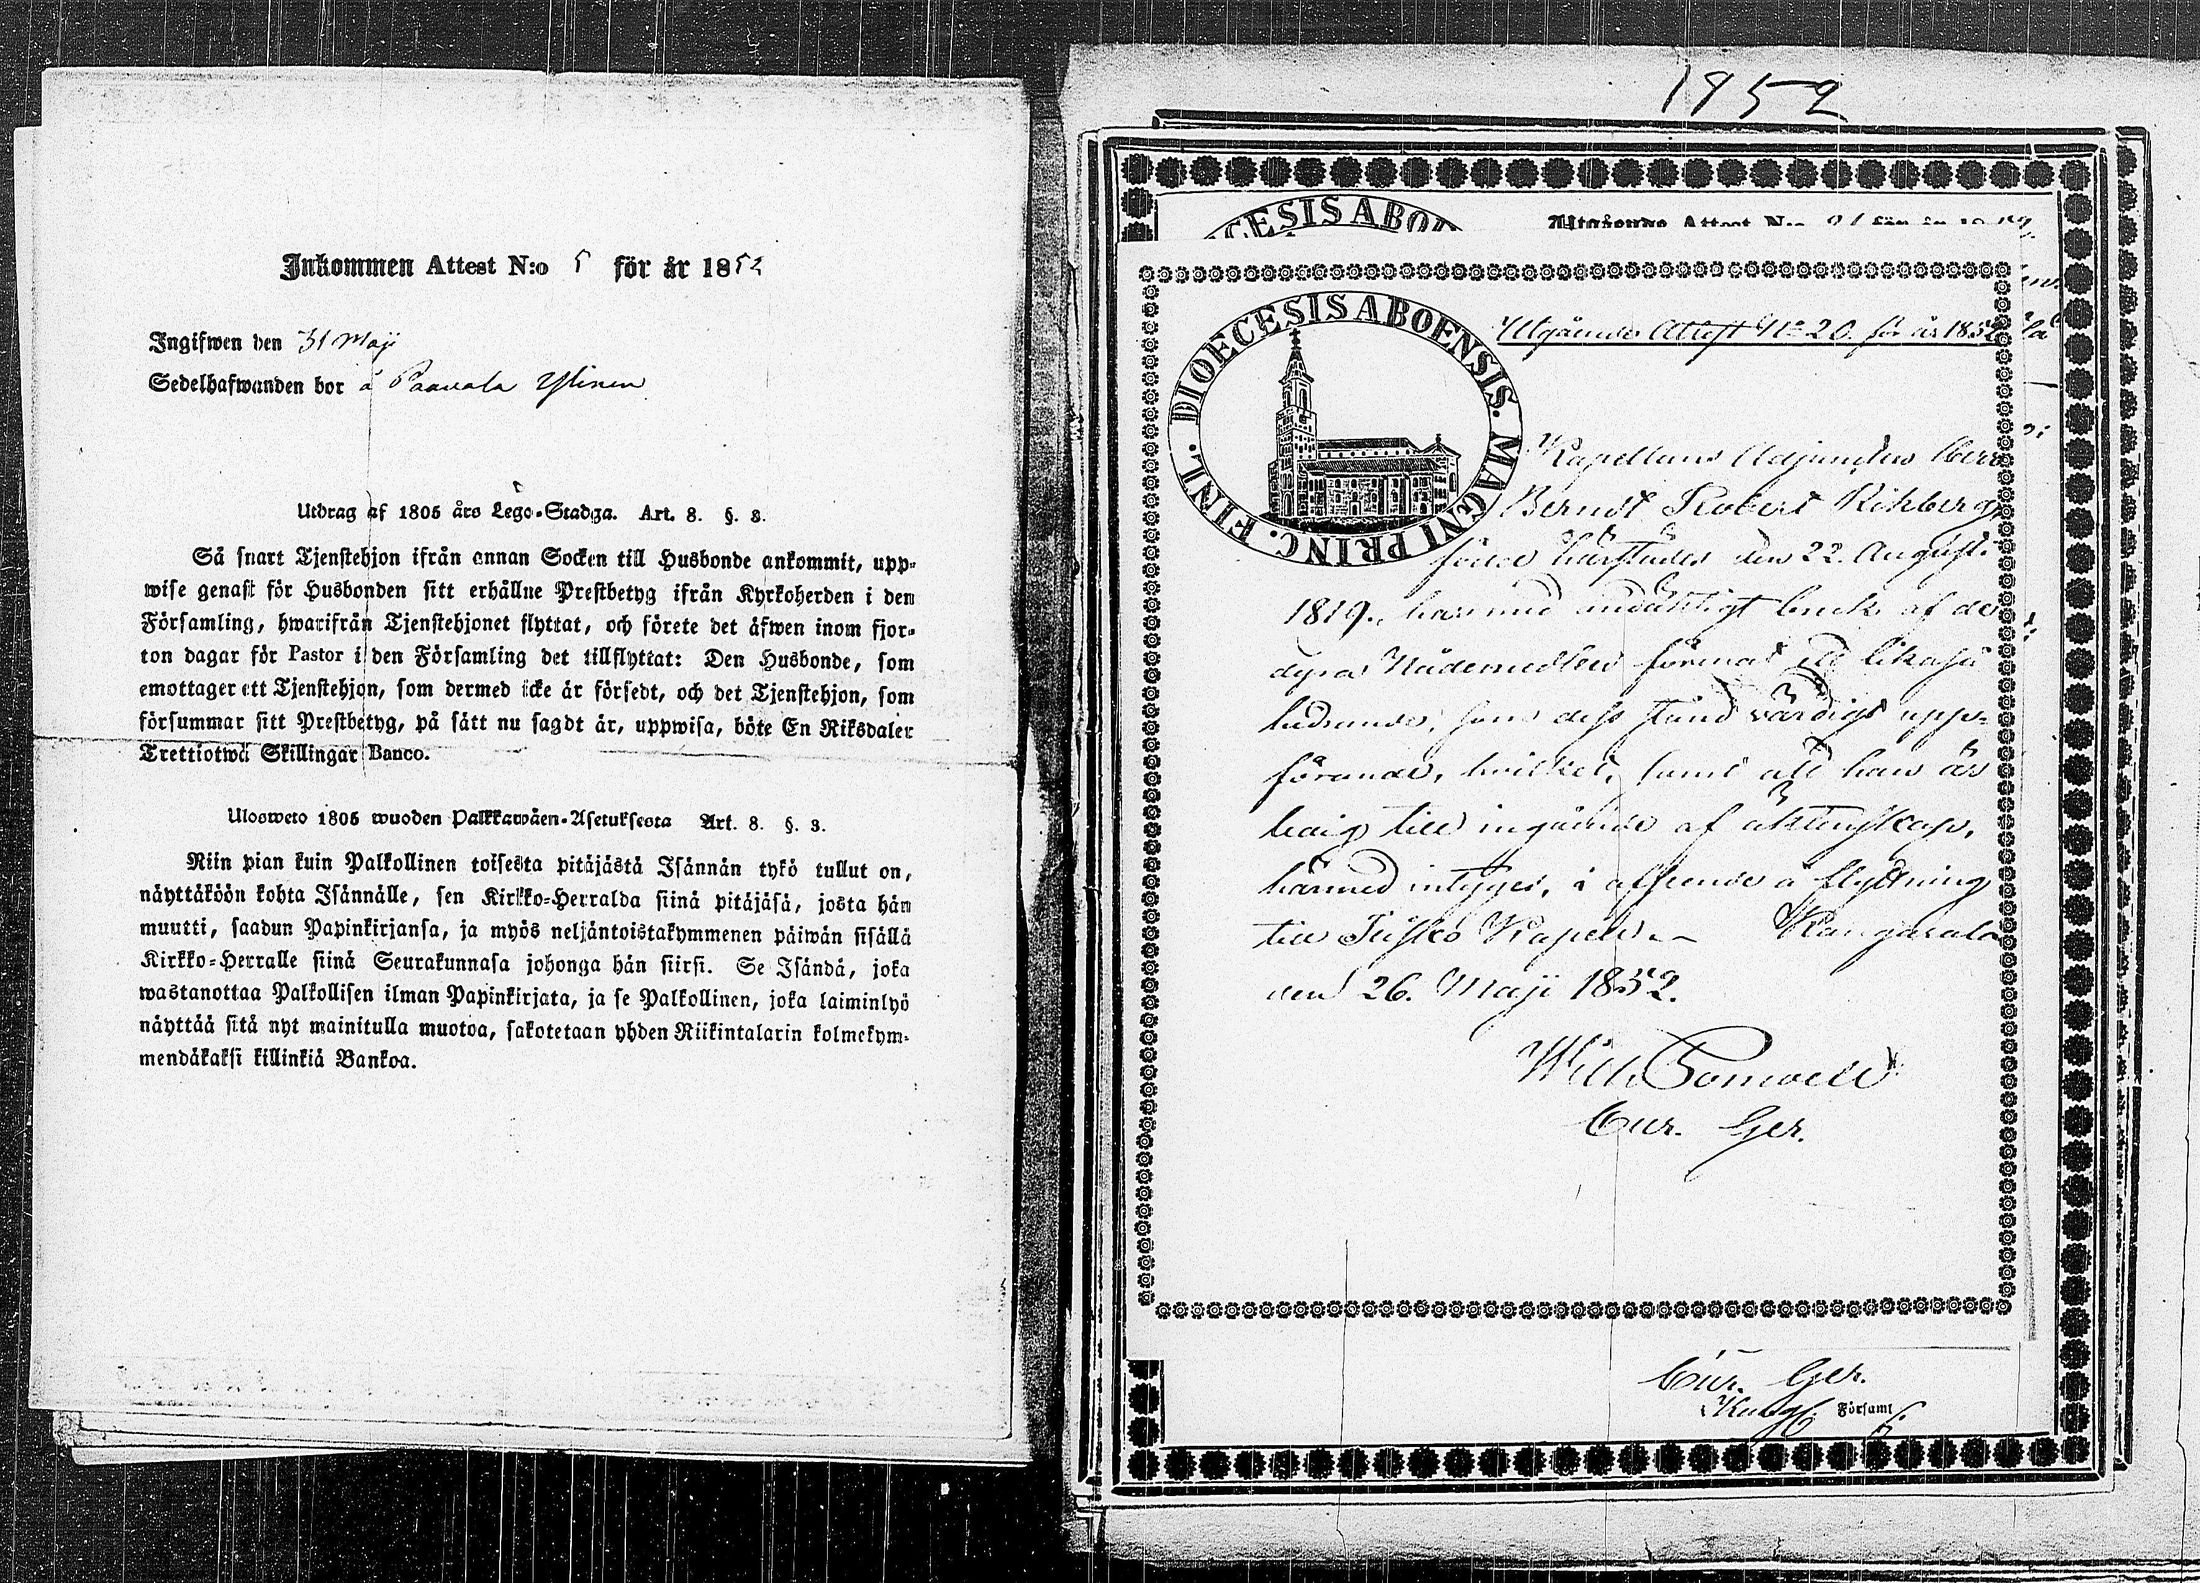 Inkommen Attest N:o 5 för år 1852
Ingifwen den 31 Maji
Sedelhafwanden bor å Paavola Ylinen
Utdrag af 1805 års Lego-Stadga. Art. 8. §. 3.
Så snart Tjenstehjon ifrån annan Socken till Husbonde ankommit, upp-
wise genast för Husbonden sitt erhållne Prestbetyg ifrån Kyrkoherden i den
Församling, hwarifrån Tjenstehjonet flyttat, och förete det äfwen inom fjor-
ton dagar för Pastor i den Församling det tillflyttat: Den Husbonde, som
emottager ett Tjenstehjon, som dermed icke är försedt, och det Tjenstehjon, som
försummar sitt Prestbetyg, på sätt nu sagdt är, uppwisa, böte En Riksdaler
Trettiotwå Skillingar Banco.
Ulosweto 1805 wuoden Palkkawäen-Asetuksesta Art. 8. §. 3.
Niin pian kuin Palkollinen toisesta pitäjästä Isännän tykö tullut on,
näyttäköön kohta Isännälle, sen Kirkko-Herralda siinä pitäjäsä, josta hän
muutti, saadun Papinkirjansa, ja myös neljäntoistakymmenen päiwän sisällä
Kirkko-Herralle siinä Seurakunnasa johonga hän siirsi. Se Isändä, joka
wastanottaa Palkollisen ilman Papinkirjata, ja se Palkollinen, joka laiminlyö
näyttää sitä nyt mainitulla muotoa, sakotetaan yhden Riikintalarin kolmekym-
mendäkaksi killinkiä Bankoa.
1852
DIOECESIS ABOE
Utgående Attest N:o 21 för år 1852
DIOECESIS ABOENSIS. MAGNI PRINC. FINL.
Utgående Attest No 20. för år 1852
Kapellans Adjunkten Herr
Berndt Robert Rihberg,
född härstädes den 22. Augusti
1819., har med andäktigt bruk af de
dyra Nådemedlen förenat ett likaså
ledande, som dess stånd värdigt upp-
förande, hvilket, samt att han är
ledig till ingående af äktenskap,
härmed intygas, i afseende å flyttning
till Kapell. Kangasala
den 26. Maji 1852.
Wilh. Bonwell
Cur. Ger.
Cur. Ger.
Kang. Församl